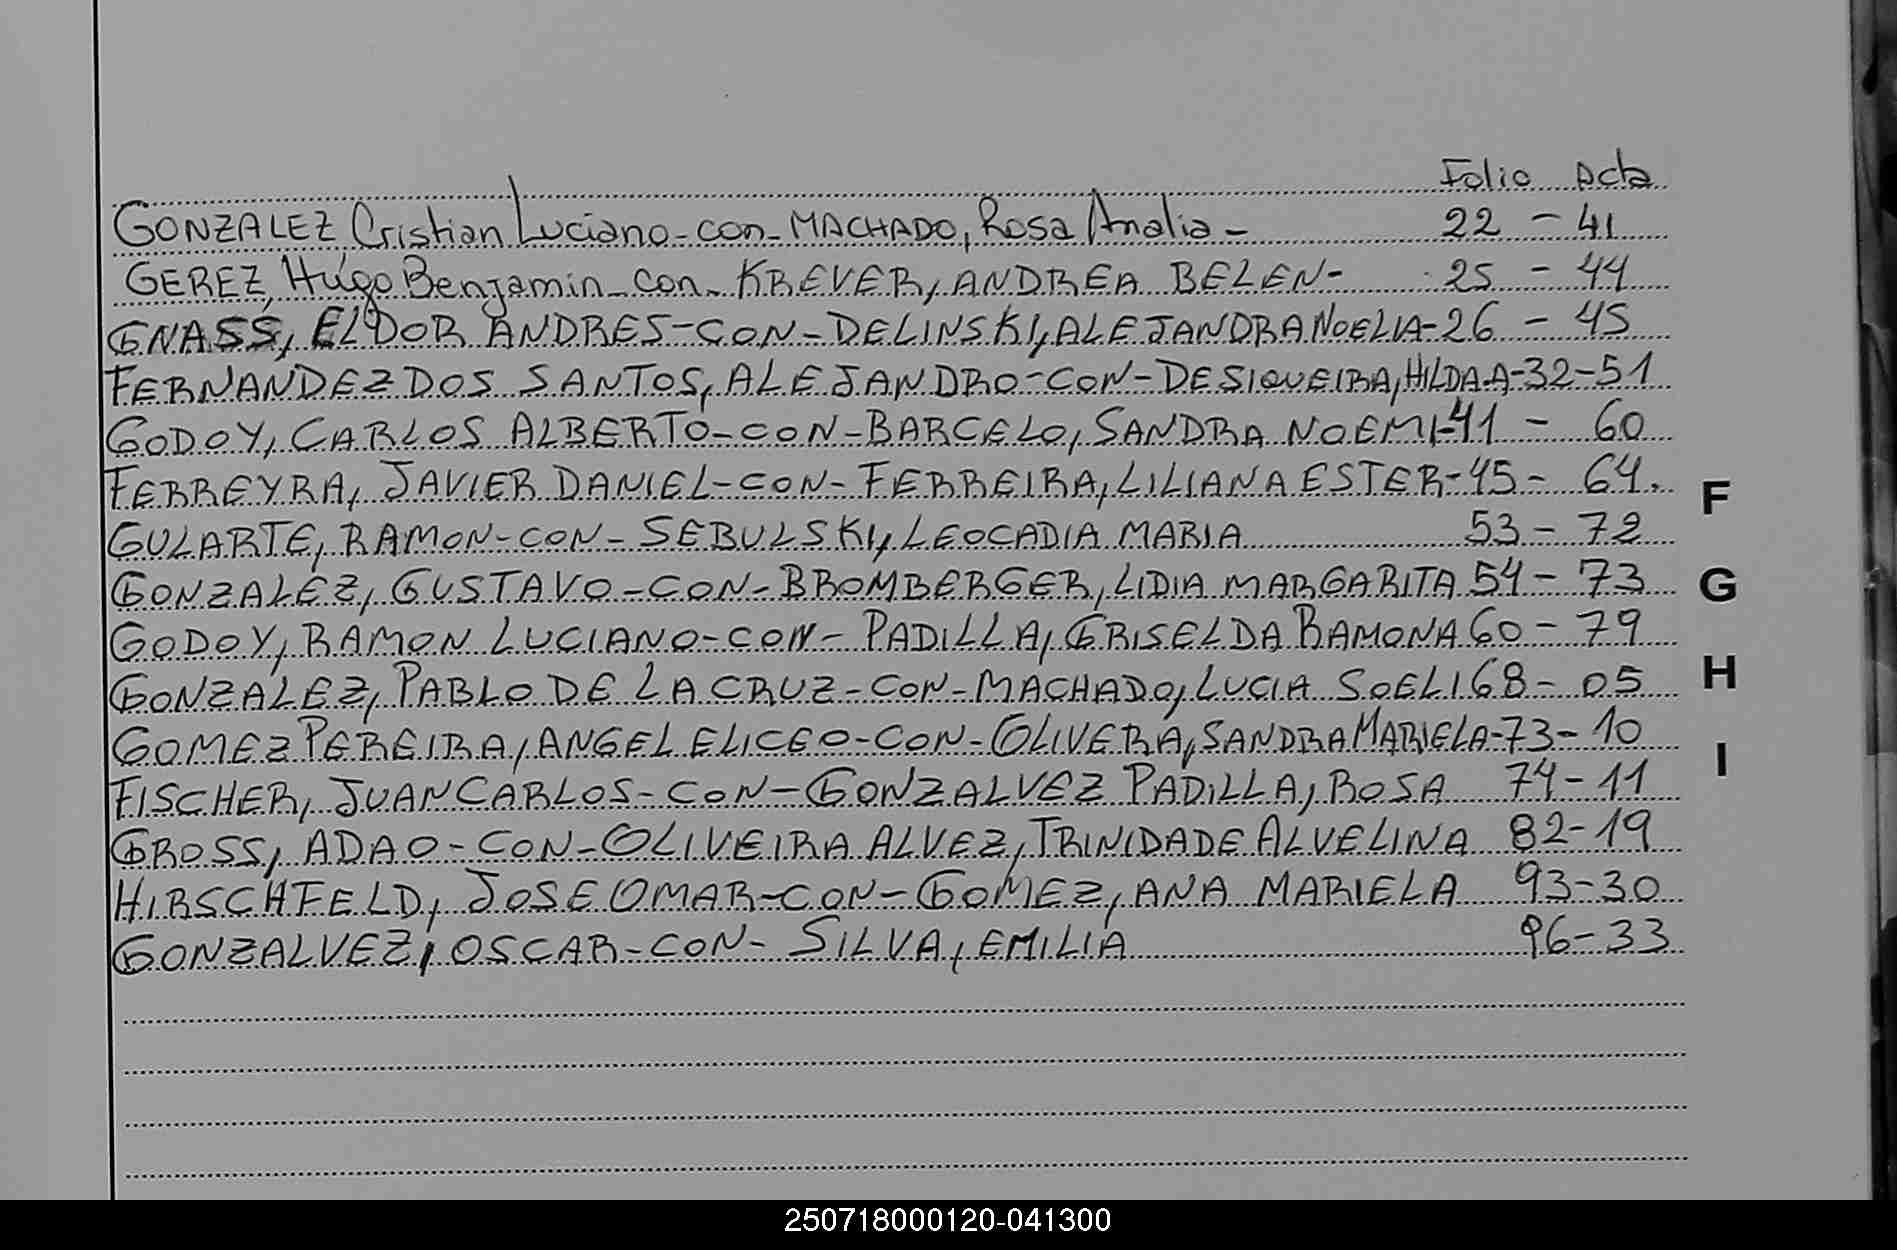 Folio Acta
GONZALEZ Cristian Luciano-con-MACHADO, Rosa Analia- 22 - 41
GEREZ, Hugo Benjamin-con-KREVER, ANDREA BELEN- 25 - 44
GNASS, ELDOR ANDRES-CON-DELINSKI, ALEJANDRA NOELIA-26 - 45
FERNANDEZ DOS SANTOS, ALEJANDRO-CON-DE SIQUEIRA, HILDA.A-32-51
GODOY, CARLOS ALBERTO-CON-BARCELO, SANDRA NOEMI-41 - 60
FERREYRA, JAVIER DANIEL-CON-FERREIRA, LILIANA ESTER-45- 64.
GULARTE, RAMON-CON-SEBULSKI, LEOCADIA MARIA 53-72
GONZALEZ, GUSTAVO-CON-BROMBERGER, LIDIA MARGARITA 54-73
GODOY, RAMON LUCIANO-CON-PADILLA, GRISELDA RAMONA 60-79
GONZALEZ, PABLO DE LA CRUZ-CON-MACHADO, LUCIA SOELI 68-05
GOMEZ PEREIRA, ANGEL ELICEO-CON-OLIVERA, SANDRA MARIELA-73-10
FISCHER, JUAN CARLOS-CON-GONZALVEZ PADILLA, ROSA 74-11
GROSS, ADAO-CON-OLIVEIRA ALVEZ, TRINIDADE ALVELINA 82-19
HIRSCHFELD, JOSE OMAR-CON-GOMEZ, ANA MARIELA 93-30
GONZALVEZ, OSCAR-CON-SILVA, EMILIA 96-33
F
G
H
I
250718000120-041300